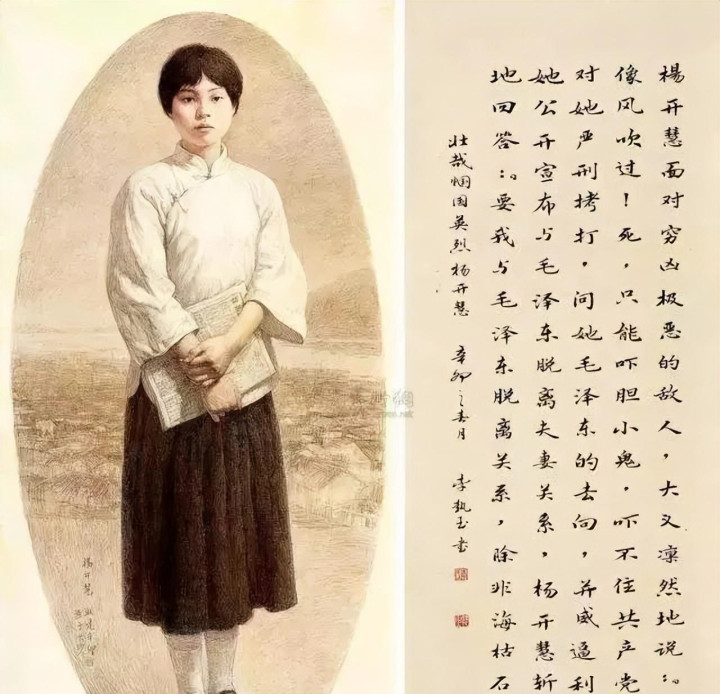 楊开慧面对穷凶极恶的敌人，大义凛然地说：
像风吹过！死，只能吓胆小鬼，吓不住共产党
对她严刑拷打，问她毛泽东的去向，并威逼利
她公开宣布与毛泽东脱离夫妻关系，杨开慧斩
地回答：要我与毛泽东脱离关系，除非海枯石
壮哉国英烈杨开慧 辛卯之春月 李执玉书
楊开慧